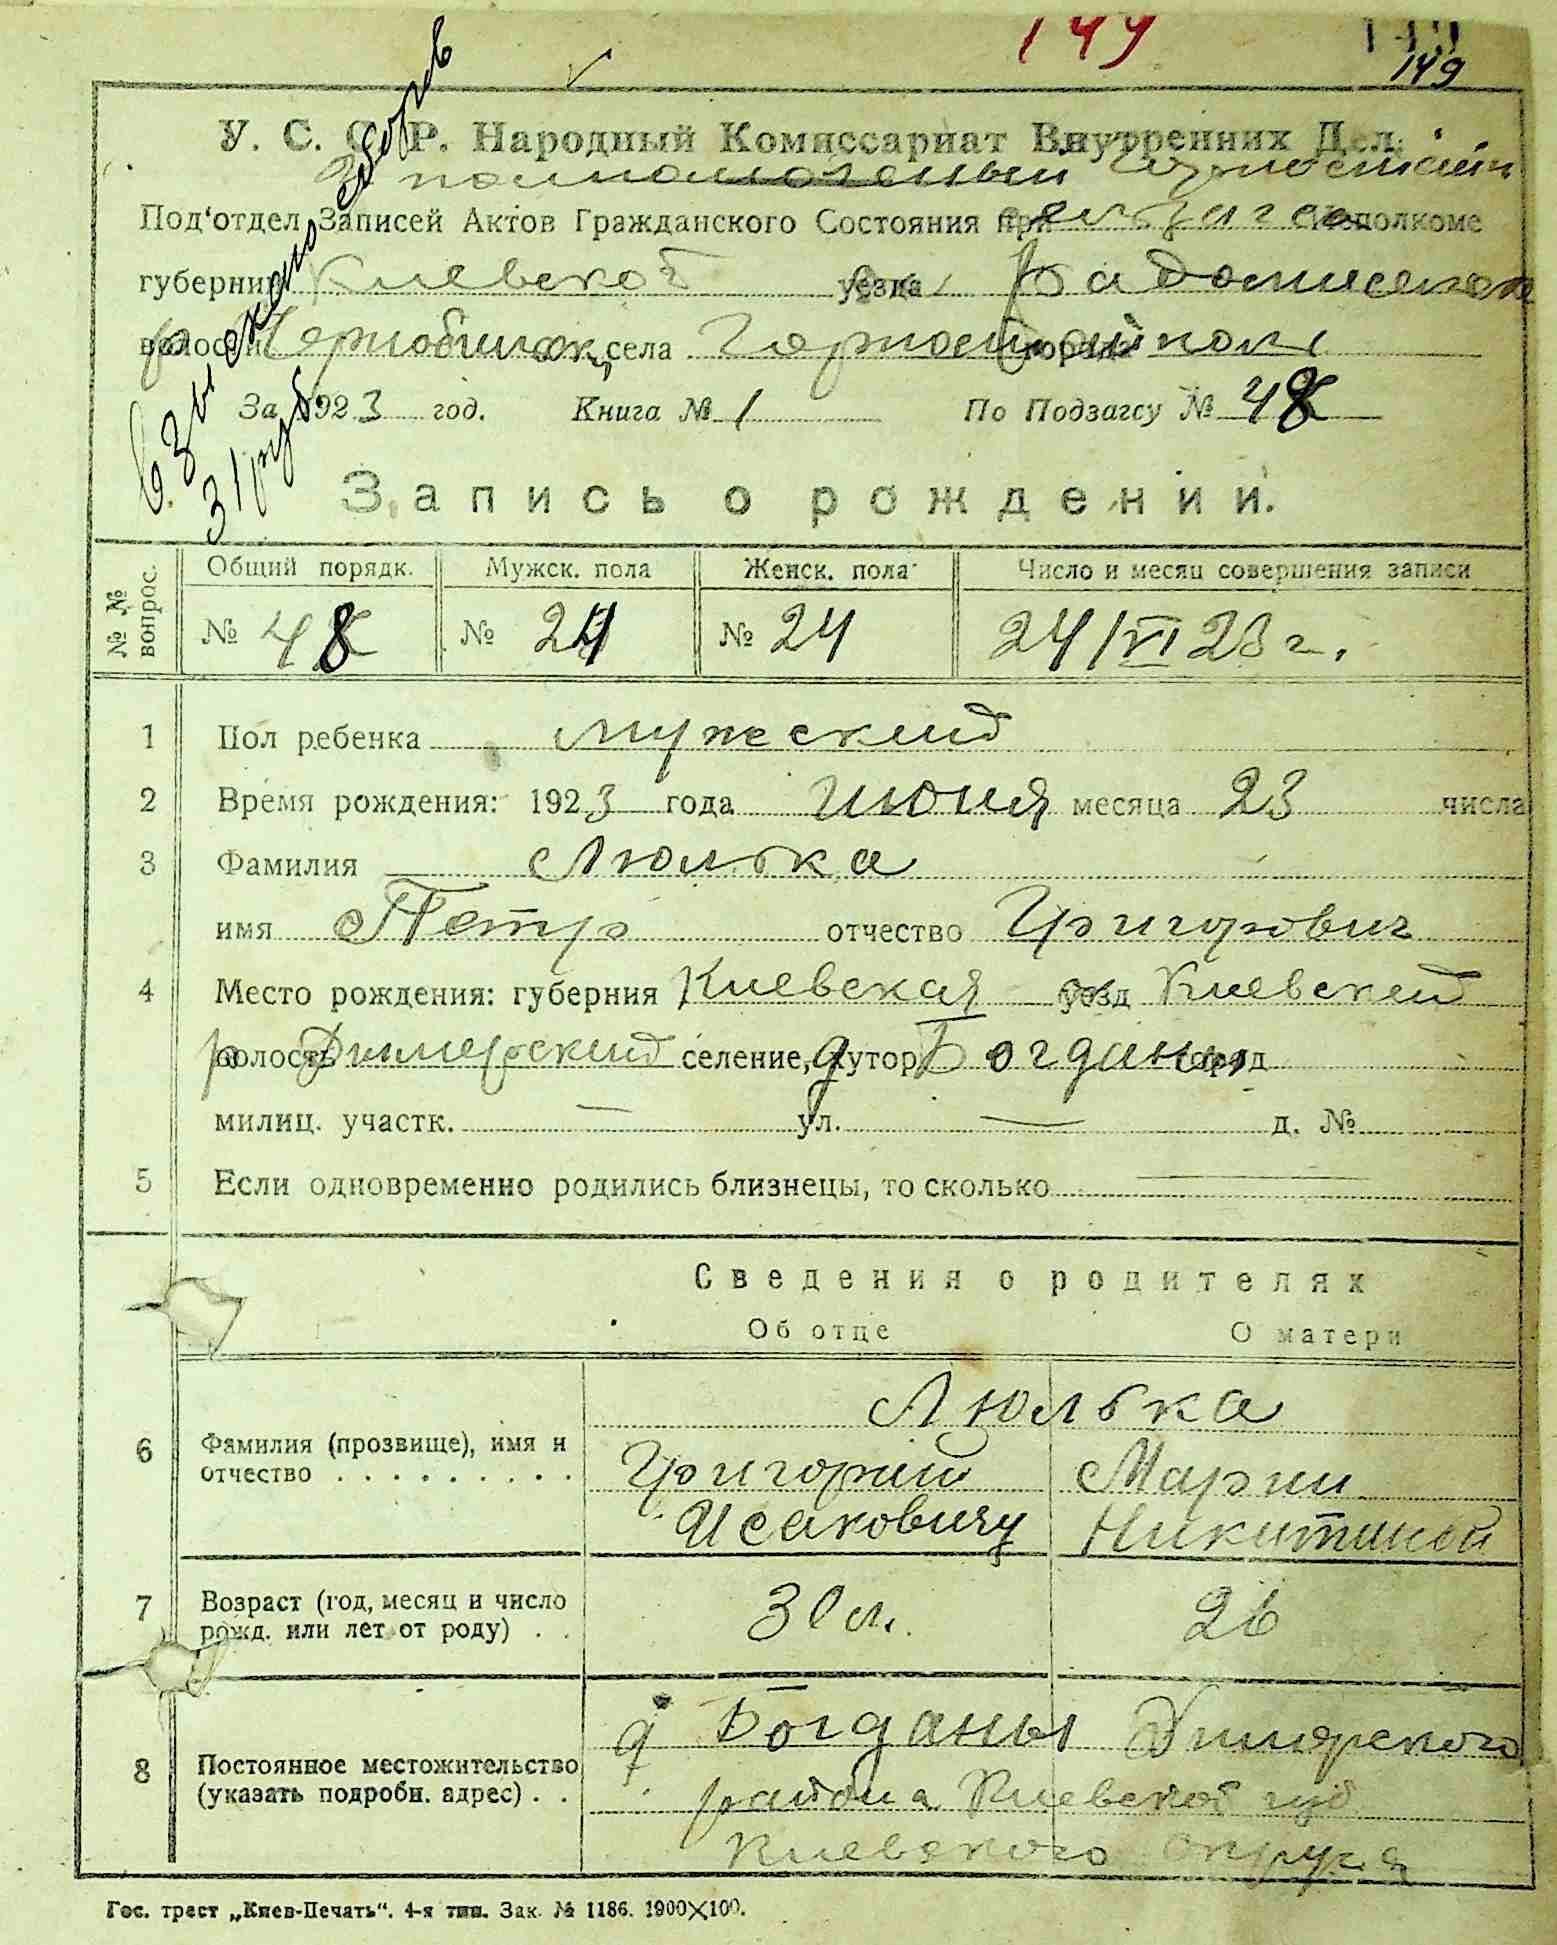 149
149
Взыскано сборов
31 руб
У. С. С. Р. Народный Комиссариат Внутренних Дел.
Под'отдел Записей Актов Гражданского Состояния при Исполкоме
губернии Киевской уезда Радомысльск
волости села Горностайполь
За 1923 год. Книга № 1 По Подзагсу № 48
Запись о рождении.
№ № вопрос. Общий порядк. Мужск. пола Женск. пола Число и месяц совершения записи
№ 48 № 24 № 24 24/VI 23 г.
1 Пол ребенка мужеский
2 Время рождения: 1923 года июня месяца 23 числа
3 Фамилия Люлька
имя Петр отчество Григорович
4 Место рождения: губерния Киевская уезд Киевский
р волость Дымерский селение, хутор д Богданы город
милиц. участк. — ул. — д. №
5 Если одновременно родились близнецы, то сколько —
Сведения о родителях
Об отце О матери
Люлька
6 Фамилия (прозвище), имя и отчество . . . . . . . . . . Григорий Марии
Исаковичу Никитиной
7 Возраст (год, месяц и число рожд. или лет от роду) . . 30 л. 26
д Богданы Дымерского
8 Постоянное местожительство (указать подробн. адрес) . . района Киевской губ
Киевского округа
Гос. трест „Киев-Печать“. 4-я тип. Зак. № 1186. 1900×100.